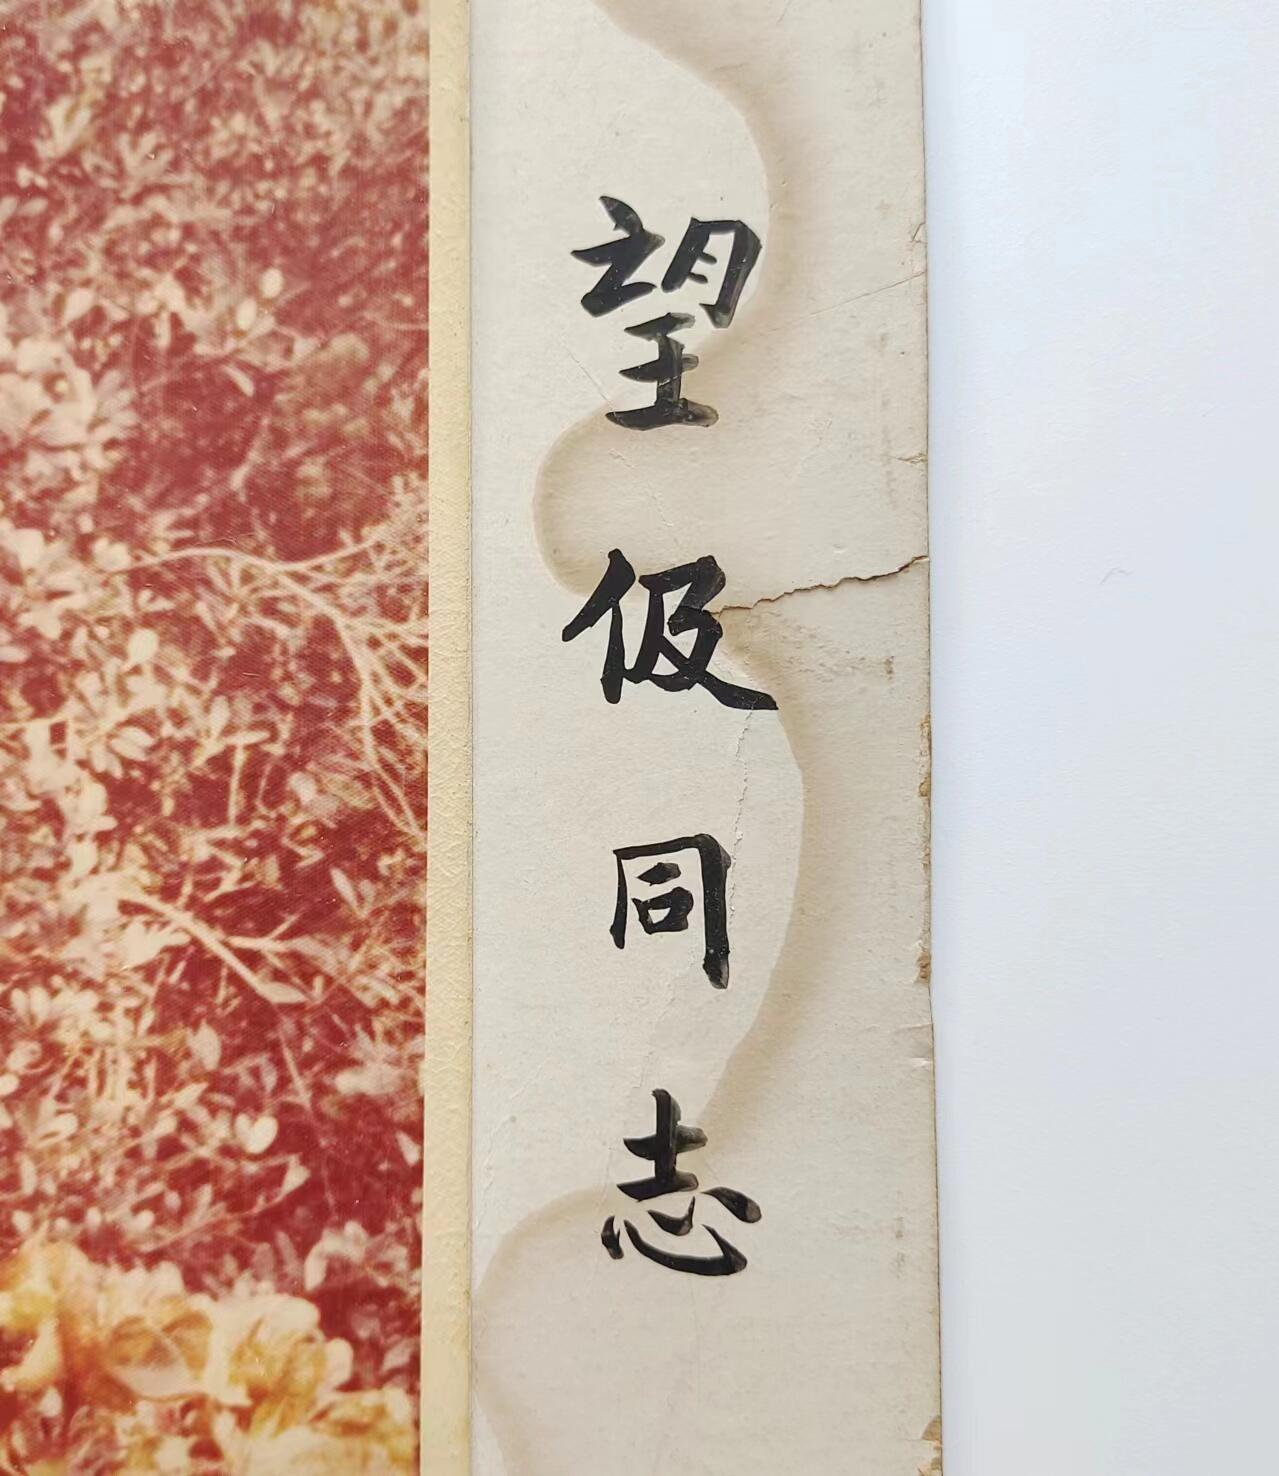 望伋同志